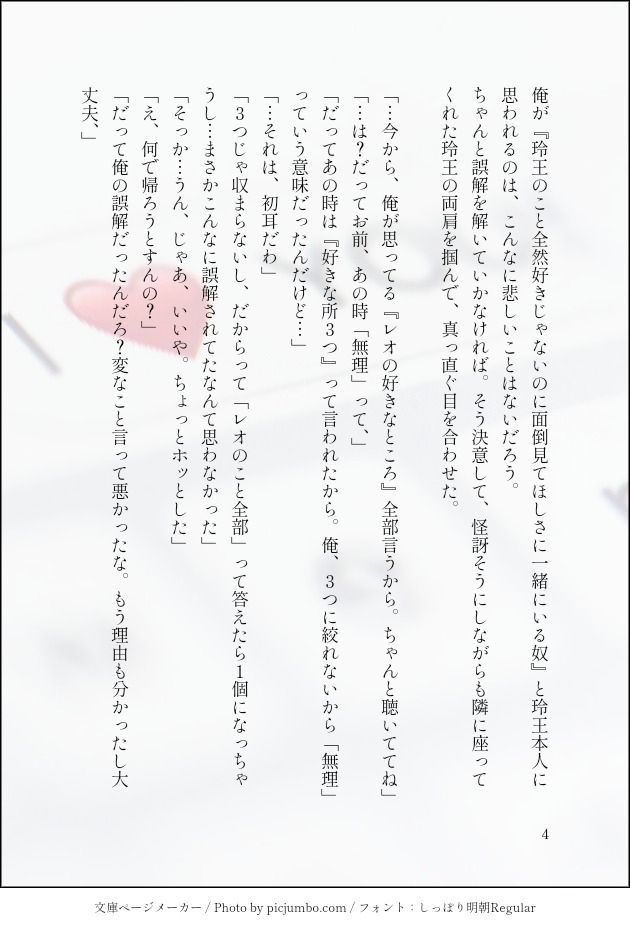 俺が『玲王のこと全然好きじゃないのに面倒見てほしさに一緒にいる奴』と玲王本人に
思われるのは、こんなに悲しいことはないだろう。
ちゃんと誤解を解いていかなければ。そう決意して、怪訝そうにしながらも隣に座って
くれた玲王の両肩を掴んで、真っ直ぐ目を合わせた。
「…今から、俺が思ってる『レオの好きなところ』全部言うから。ちゃんと聴いててね」
「…は？だってお前、あの時「無理」って、」
「だってあの時は『好きな所３つ』って言われたから。俺、３つに絞れないから「無理」
っていう意味だったんだけど…」
「…それは、初耳だわ」
「３つじゃ収まらないし、だからって「レオのこと全部」って答えたら１個になっちゃ
うし…まさかこんなに誤解されてたなんて思わなかった」
「そっか…うん、じゃあ、いいや。ちょっとホッとした」
「え、何で帰ろうとすんの？」
「だって俺の誤解だったんだろ？変なこと言って悪かったな。もう理由も分かったし大
丈夫、」
4
文庫ページメーカー / Photo by picjumbo.com / フォント：しっぽり明朝Regular